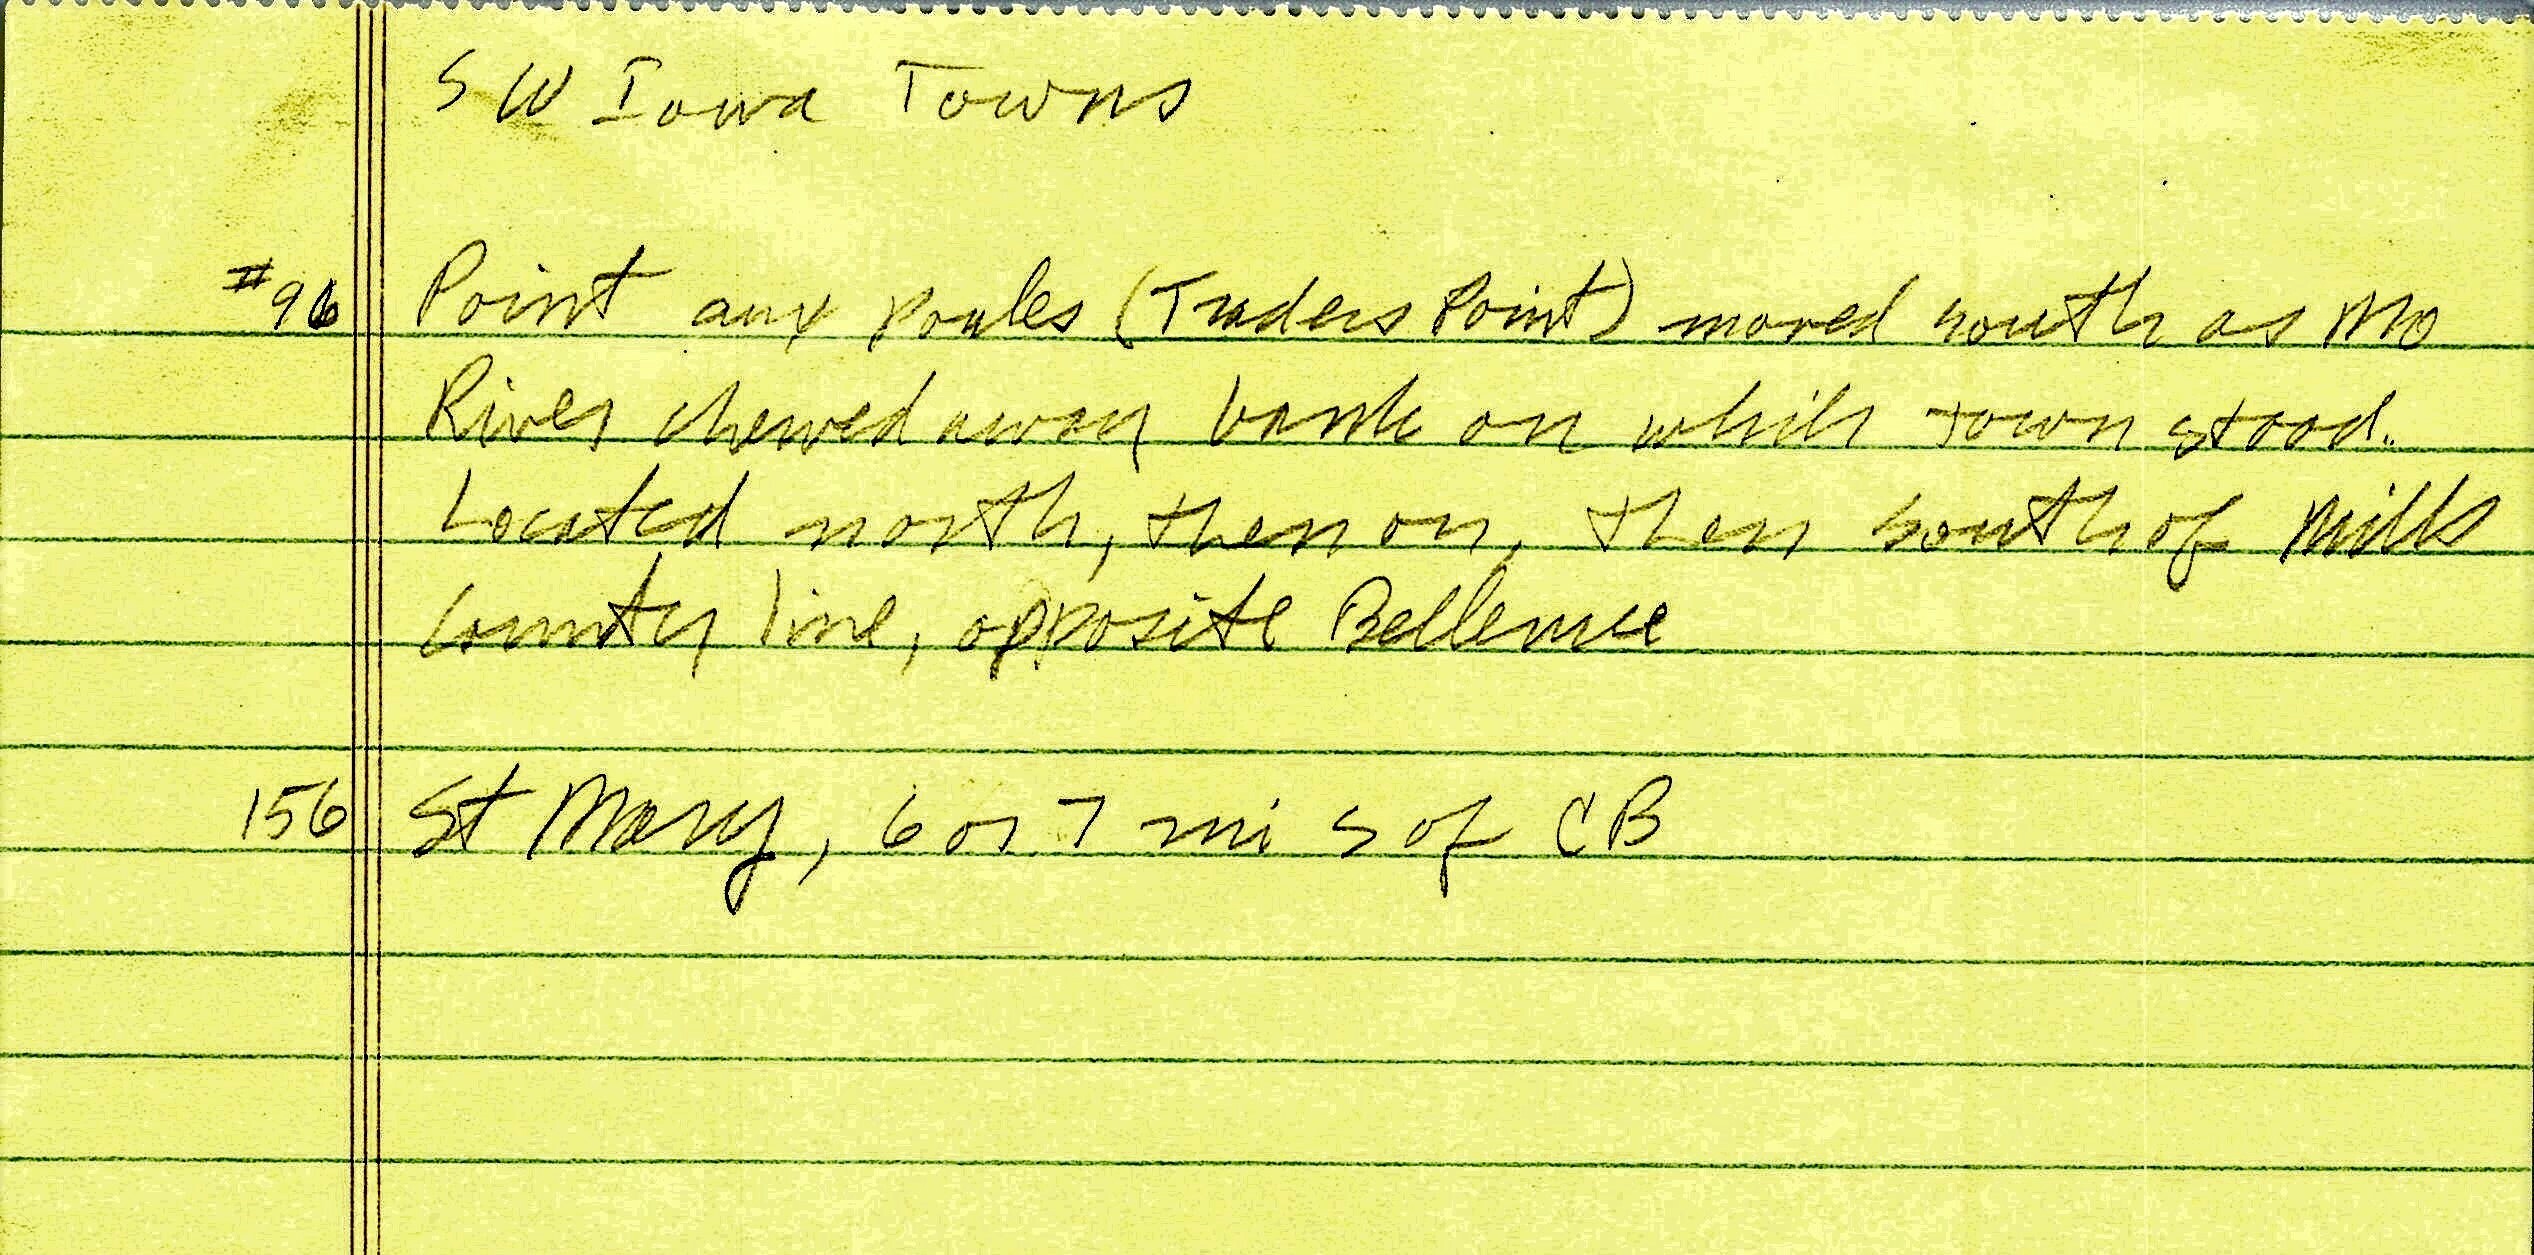 SW Iowa Towns
#96 Point aux Poules (Traders Point) moved south as Mo
River chewed away bank on which town stood.
Located north, then on, then south of Mills
County line, opposite Bellevue
156 St Mary, 6 or 7 mi S of CB